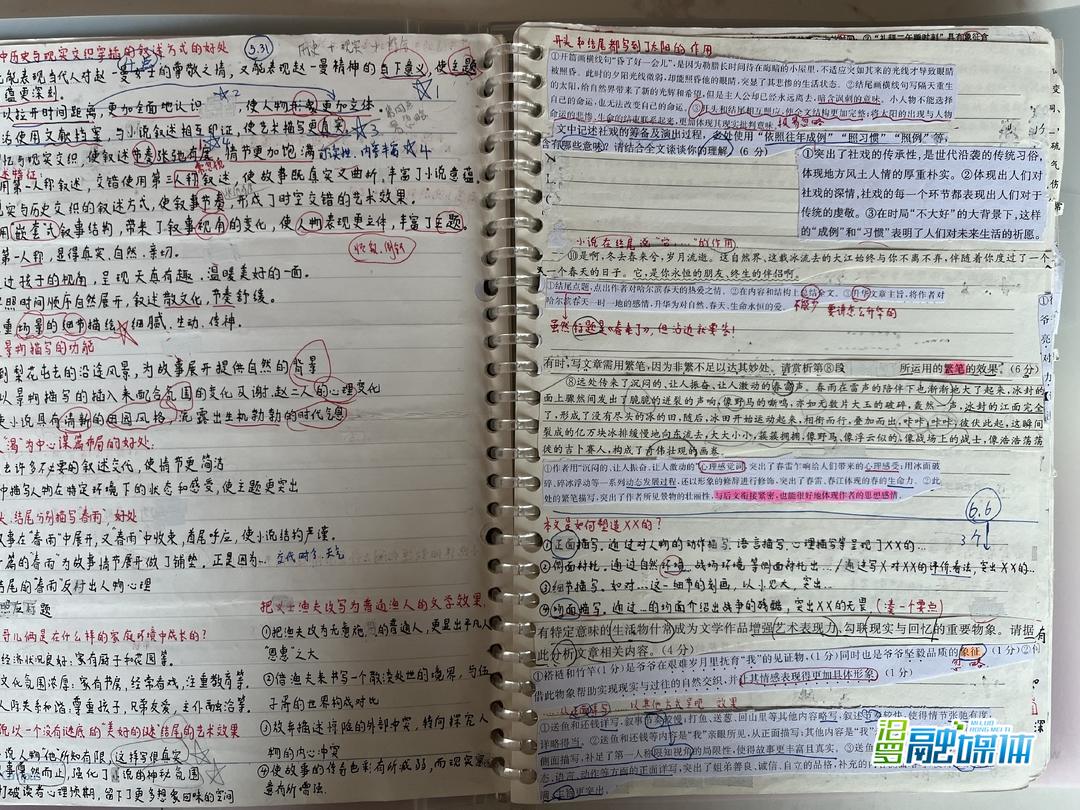 中历史与现实交织穿插的叙述方式的好处
5.31
历史+现实+
既能表现当代人对赵一曼女士的尊敬之情，又能表现赵一曼精神的当下意义，使主题
蕴更深刻。
以拉开时间距离，更加全面地认识 使人物形象更加立体
活使用文献档案，与小说叙述相互印证，使艺术描写更真实。
忆与现实交织，使叙述节奏张弛有度 情节更加饱满
用第一人称叙述，交错使用第三人称叙述，使故事既真实又曲折，丰富了小说意蕴
现实与历史交织的叙述方式，使叙事节奏，形成了时空交错的艺术效果。
用嵌套式叙事结构，带来了叙事视角的变化，使人物表现更立体，丰富了主题。
第一人称，显得真实、自然、亲切。
过孩子的视角，呈现天真有趣、温暖美好的一面。
照时间顺序自然展开，叙述散文化，节奏舒缓。
重场景的细节描绘 细腻、生动、传神。
景物描写的功能
到梨花屯去的沿途风景，为故事展开提供自然的背景
以景物描写的插入来配合氛围的变化及谢、赵二人的心理变化
使小说具有清新的田园风格，流露出生机勃勃的时代气息
为中心谋篇布局的好处
去许多不必要的叙述交代，使情节更简洁
中描写人物在特定环境下的状态和感受，使主题更突出
头、结尾分别描写春雨，好处
故事在"春雨"中展开，又"春雨"中收束，首尾呼应，使小说结构严谨。
篇的春雨"为故事情节展开做了铺垫，正是因为… 交代时令、天气
结尾的春雨反衬出人物心理
哥儿俩是在什么样的家庭环境中成长的？
经济状况良好：家有厨子和花园等。
文化氛围浓厚：家有书房，经常看戏，注重教育等。
人的关系和谐：尊重孩子，兄弟友爱，主仆融洽等。
说以一个没有谜底的"美好的谜"结尾的艺术效果
说人物"他"所知有限，这样写很真实
故事戛然而止，强化了小说的神秘氛围
打破读者心理预期，留下了更多想象回味的空间
把义士渔夫改写为普通渔人的文学效果
①把渔夫改为无意施 的普通人，更显出平凡人
"恩惠"之大
②借渔夫来书写一个散淡处世的境界，与伍
子胥的世界构成对比
③放弃描述冒险的外部冲突，转向探究人
物的内心冲突
④使故事的传奇色彩有所减弱，而现实
意有所增强
开头和结尾都写到了太阳的作用
①开篇画横线句"昏了好一会儿"，是因为勒长时间待在晦暗的小屋里，不适应突如其来的光线才导致眼睛
被照昏。此时的夕阳光线微弱，却能照昏他的眼睛，突显了其悲惨的生活状态。②结尾画横线句写隔天重生
的太阳，给自然界带来了新的光辉和希望，但是主人公却已经永远离去，暗含讽刺的意味，小人物不能选择
自己的命运，也无法改变自己的命运。③开头和结尾相互照应，使小说结构更加完整；将太阳的出现与人物
命运的悲惨、生命的结束联系起来，更加体现其现实批判意味
文中记述社戏的筹备及演出过程，多处使用"依照往年成例""照习惯""照例"等，
含有哪些意味？请结合全文谈谈你的理解 (6分)
①突出了社戏的传承性，是世代沿袭的传统习俗，
体现地方风土人情的厚重朴实。②体现出人们对
社戏的深情，社戏的每一个环节都表现出人们对于
传统的虔敬。③在时局"不大好"的大背景下，这样
的"成例"和"习惯"表明了人们对未来生活的祈愿。
小说在结尾说"它……"的作用
⑩是啊，冬去春来兮，岁月流逝。这自然界，这载冰流去的大江始终与你不离不弃，伴随着你度过了一个又
一个春天的日子。它，是你永恒的朋友、终生的伴侣啊。
①结尾点题，点出作者对哈尔滨春天的热爱之情。②在内容和结构上总结全文。③升华文章主旨，将作者对
哈尔滨春天一时一地的感情，升华为对自然、春天、生命永恒的爱。
虽然标题是《春来了》，但沾边就要答！
要讲怎么升华的
有时，写文章需用繁笔，因为非繁不足以达其妙处。请赏析第⑧段 所运用的繁笔的效果。(6分)
⑧远处传来了沉闷的、让人振奋、让人激动的春雷声。春雨在雷声的陪伴下也渐渐地大了起来，冰封的江
面上骤然间发出了脆脆的迸裂的声响，像野马的嘶鸣，亦如无数片大玉的破碎，轰然一声，冰封的江面完全
了，形成了没有尽头的冰的田，随后，冰田开始运动起来，相衔而行，叠加而出，咔咔，咔咔，彼伏此起，这瞬间
裂成的亿万块冰排缓慢地向东流去，大大小小，蓑蓑拥拥，像野马，像浮云似的，像战场上的战士，像浩浩荡荡
彼的吉卜赛人，构成了奇伟壮观的画卷。
①作者用"沉闷的、让人振奋、让人激动的"心理感觉词，突出了春雷乍响给人们带来的心理感受；用冰面破
碎、碎冰浮动等一系列动态发展过程，还以形象的修辞进行修饰，突出了春雷、春江体现的春的生命力。②此
处的繁笔描写，突出了作者所见景物的壮丽性，与后文衔接紧密，也能很好地体现作者的思想感情
6.6
3个
本文是如何塑造XX的？
①正面描写，通过对人物的动作描写、语言描写、心理描写等呈现了XX的…
②侧面衬托，通过自然环境、战场环境等侧面衬托出…/通过写X对XX的评价看法，突出XX的…
③细节描写，如对…这一细节的刻画，以小见大，突出…
④场面描写，通过…的场面介绍出战争的残酷，突出XX的无畏 (凑一个要点)
有特定意味的生活物什常成为文学作品增强艺术表现力、勾联现实与回忆的重要物象。请据
此分析文章相关内容。(4分)
梧桐和竹竿(1分)是爷爷在艰难岁月里抚育"我"的见证物，(1分)同时也是爷爷坚毅品质的象征(1分)②
借此物象帮助实现现实与过往的自然交织，并让其情感表现得更加具体形象 (1分)
①送鱼和还钱详写，叙事节奏较慢，打鱼、送葱、回山里等其他内容略写，叙述节奏较快，使得情节张弛有度，
详略得当。②送鱼和还钱等内容是"我"亲眼所见，从正面描写；其他内容是"我"
侧面描写，补足了第一人称限知视角的局限性，使得故事更丰富且真实。③送鱼
态、语言、动作等方面的正面详写，突出了姐弟善良、诚信、自立的品格，补充的
主旨更突出。
温县融媒体